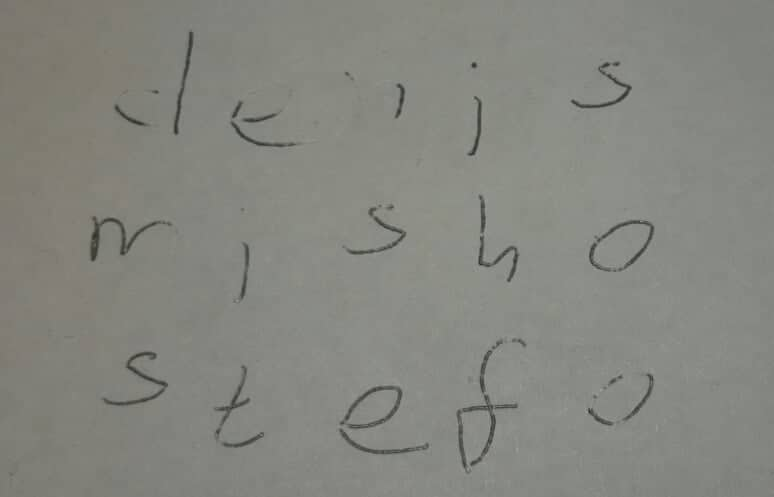 denis
misho
stefo